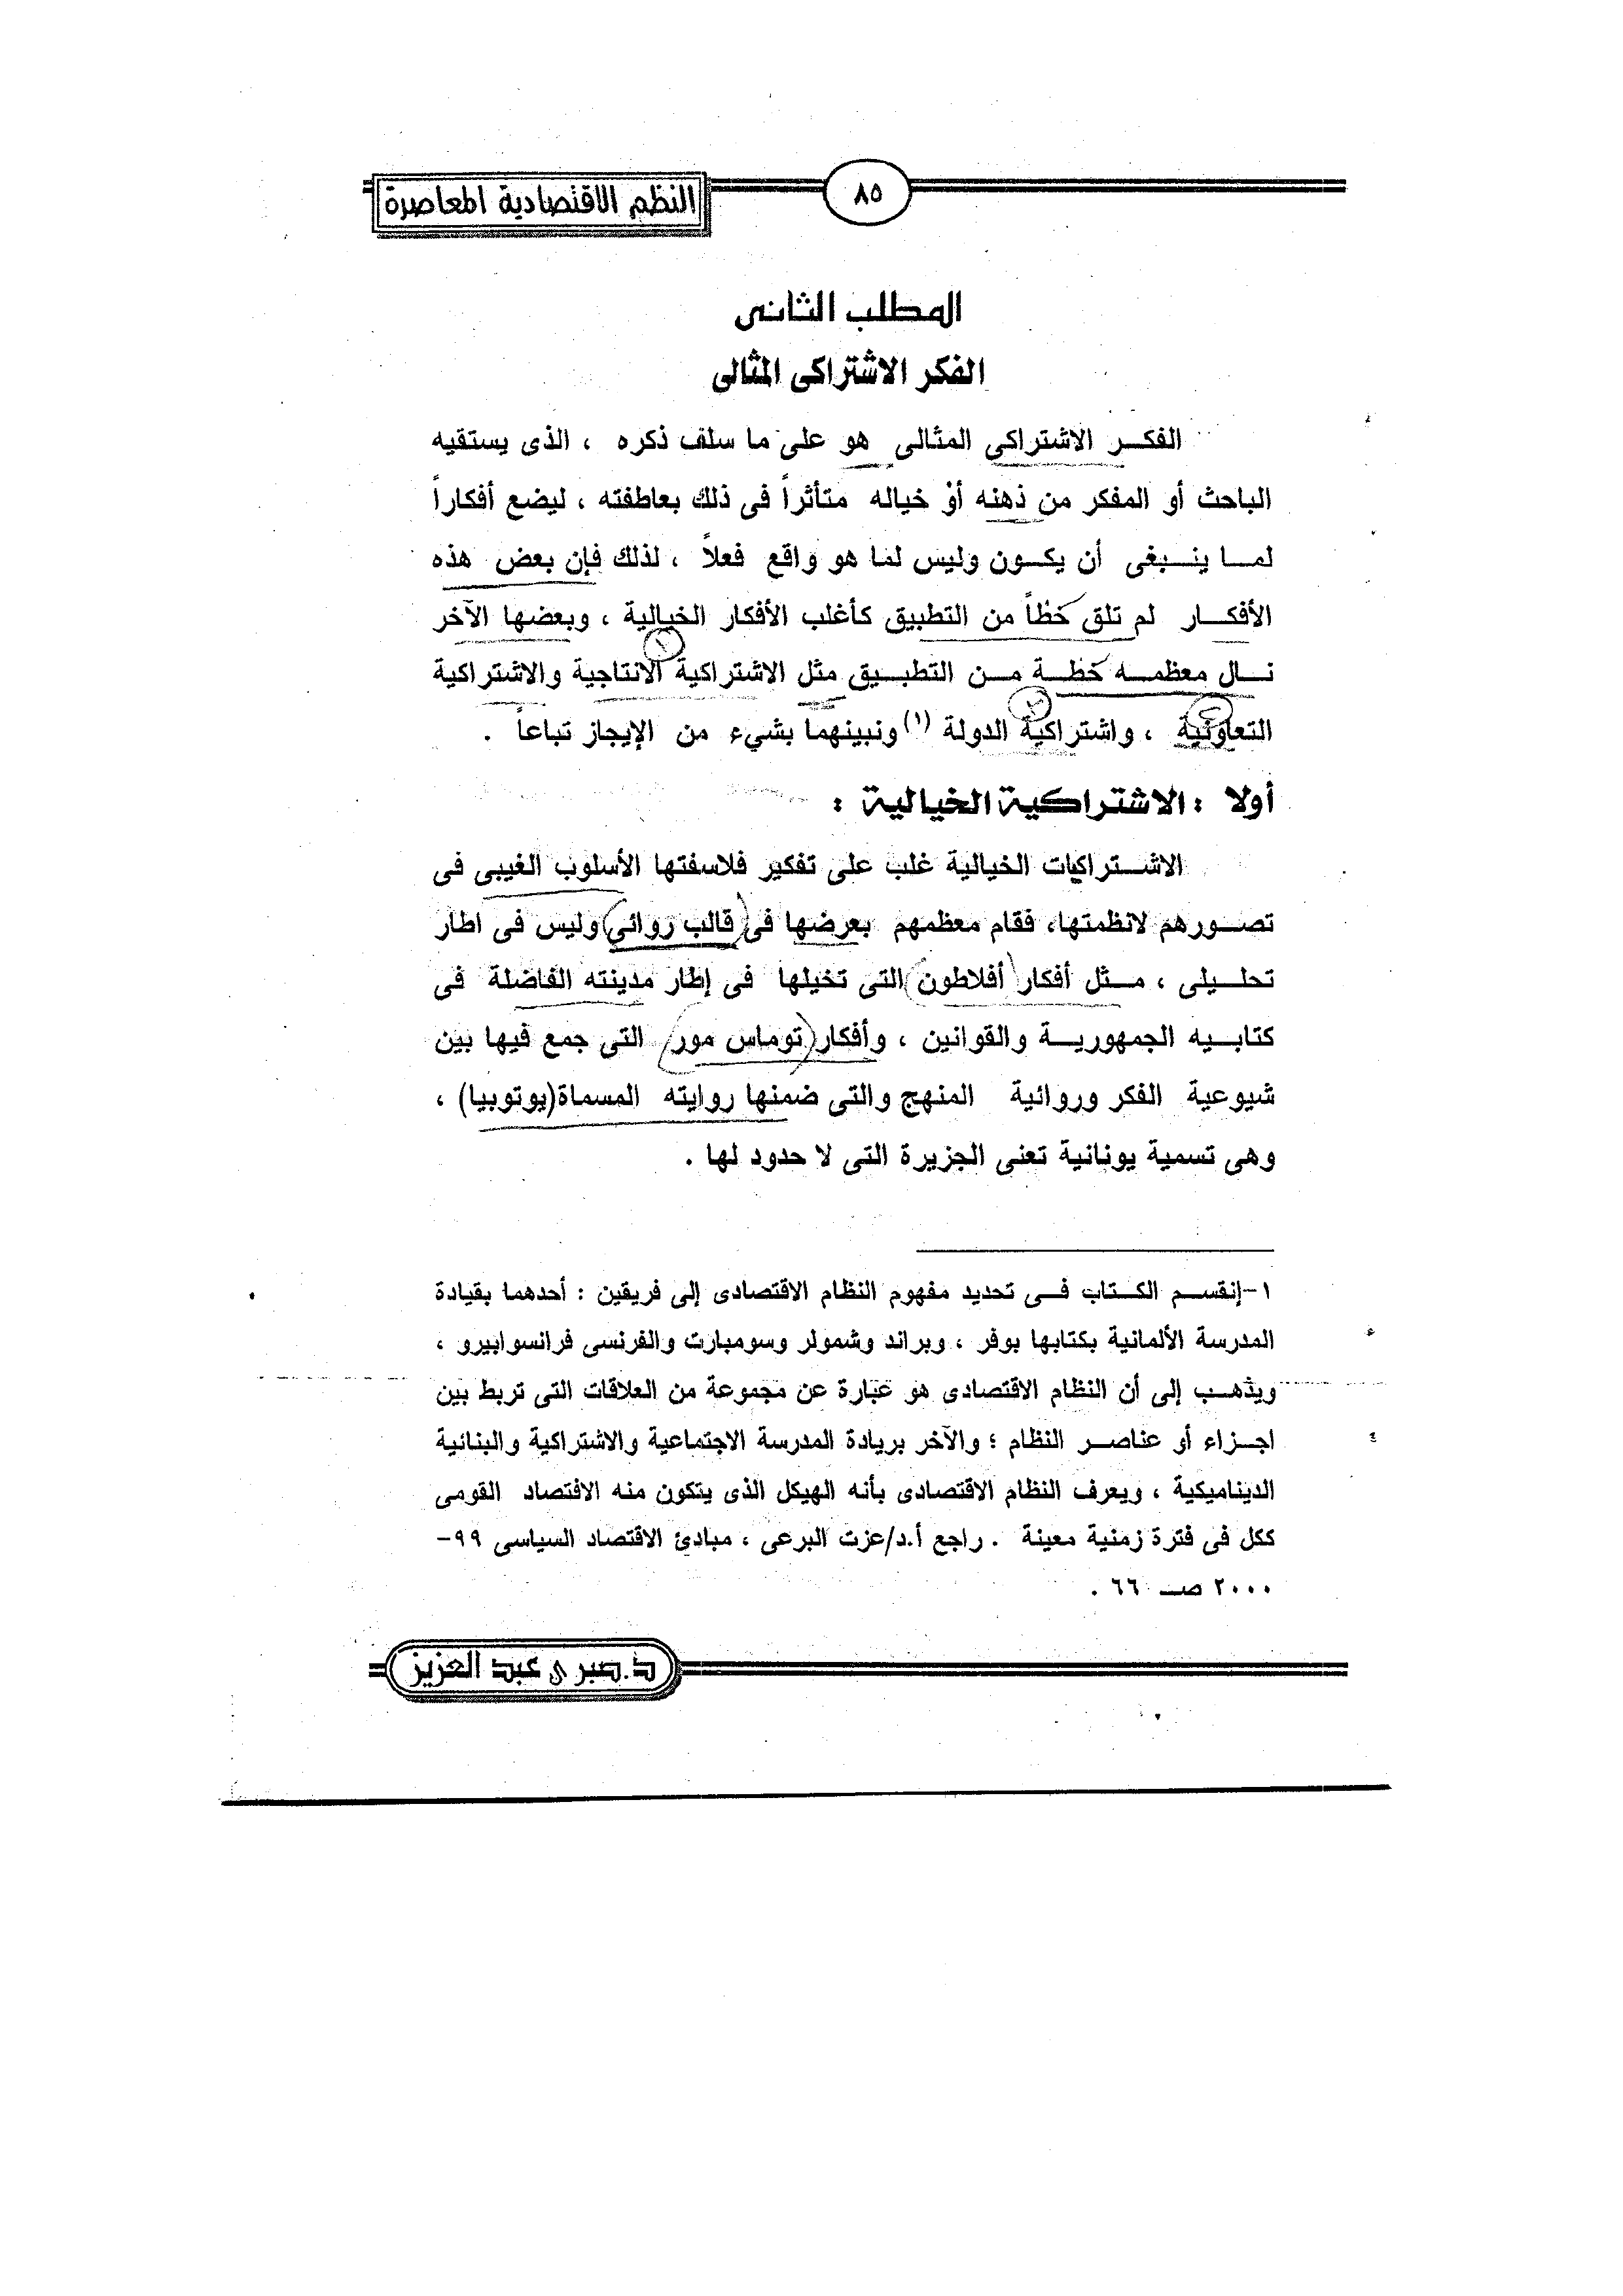 النظم الاقتصادية المعاصرة
٨٥
المطلب الثانى
الفكر الاشتراكى المثالى
الفكر الاشتراكى المثالى هو على ما سلف ذكره ، الذى يستقيه
الباحث أو المفكر من ذهنه أو خياله متأثراً فى ذلك بعاطفته ، ليضع أفكاراً
لما ينبغى أن يكون وليس لما هو واقع فعلاً ، لذلك فإن بعض هذه
الأفكار لم تلق خظاً من التطبيق كأغلب الأفكار الخيالية ، وبعضها الآخر
نال معظمه خظة من التطبيق مثل الاشتراكية الانتاجية والاشتراكية
التعاونية ، واشتراكية الدولة (١) ونبينهما بشيء من الإيجاز تباعاً .
أولا : الاشتراكية الخيالية :
الاشتراكيات الخيالية غلب على تفكير فلاسفتها الأسلوب الغيبى فى
تصورهم لانظمتها، فقام معظمهم بعرضها فى قالب روائي وليس فى اطار
تحليلى ، مثل أفكار أفلاطون التى تخيلها فى إطار مدينته الفاضلة فى
كتابيه الجمهورية والقوانين ، وأفكار توماس مور التى جمع فيها بين
شيوعية الفكر وروائية المنهج والتى ضمنها روايته المسماة(يوتوبيا) ،
وهى تسمية يونانية تعنى الجزيرة التى لا حدود لها .
١-إنقسم الكتاب فى تحديد مفهوم النظام الاقتصادى إلى فريقين : أحدهما بقيادة
المدرسة الألمانية بكتابها بوفر ، وبراند وشمولر وسومبارت والفرنسى فرانسوابيرو ،
ويذهب إلى أن النظام الاقتصادى هو عبارة عن مجموعة من العلاقات التى تربط بين
اجزاء أو عناصر النظام ؛ والآخر بريادة المدرسة الاجتماعية والاشتراكية والبنائية
الديناميكية ، ويعرف النظام الاقتصادى بأنه الهيكل الذى يتكون منه الاقتصاد القومى
ككل فى فترة زمنية معينة . راجع أ.د/عزت البرعى ، مبادئ الاقتصاد السياسى ٩٩-
٢٠٠٠ صـ ٦٦ .
د.صبرى عبد العزيز